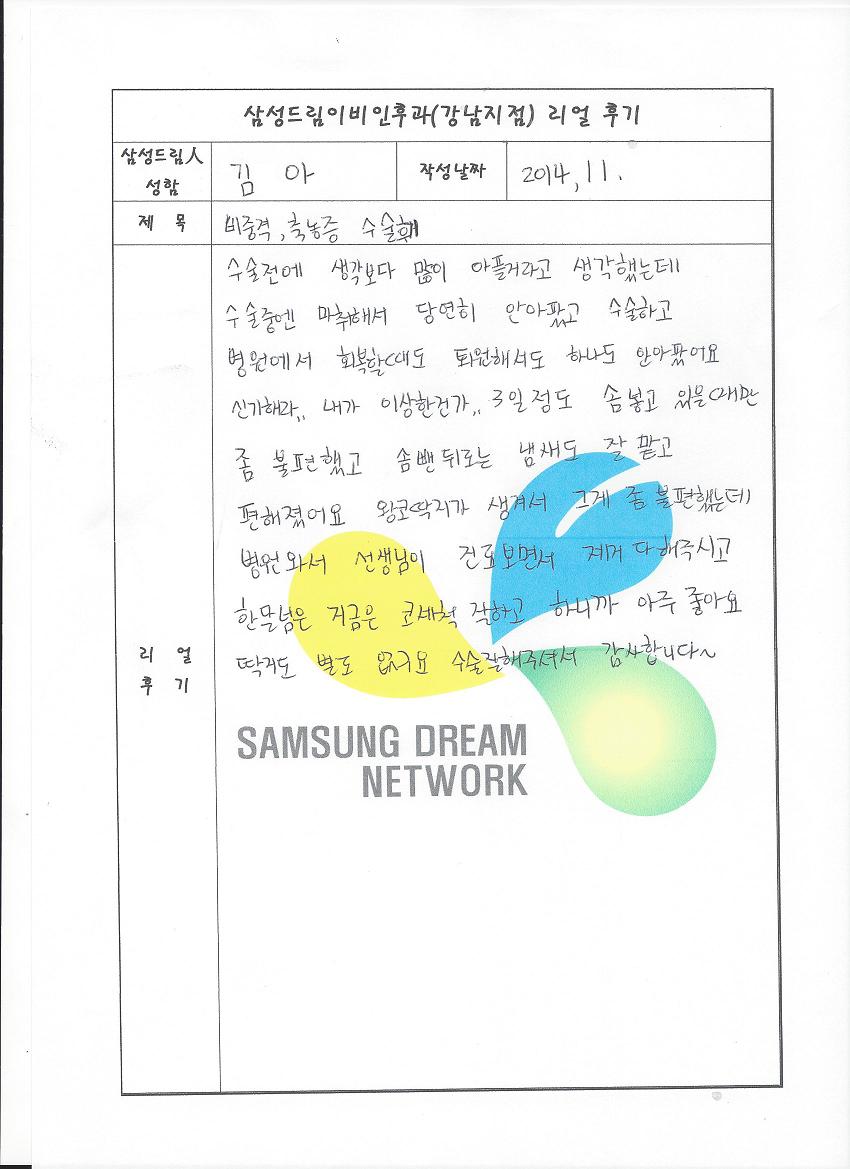 삼성드림이비인후과(강남지점) 리얼 후기
삼성드림人
성함
김 아
작성날짜
2014, 11.
제 목
비중격, 축농증 수술후
수술전에 생각보다 많이 아플거라고 생각했는데
수술중엔 마취해서 당연히 안아팠고 수술하고
병원에서 회복할때도 퇴원해서도 하나도 안아팠어요
신기해라,, 내가 이상한건가,, 3일정도 솜넣고 있을때만
좀 불편했고 솜뺀뒤로는 냄새도 잘 맡고
편해졌어요 왕코딱지가 생겨서 그게 좀 불편했는데
병원와서 선생님이 진료보면서 제거 다해주시고
한달넘은 지금은 코세척 잘하고 하니까 아주 좋아요
딱지도 별로 없구요 수술잘해주셔서 감사합니다~
리 얼
후 기
SAMSUNG DREAM
NETWORK